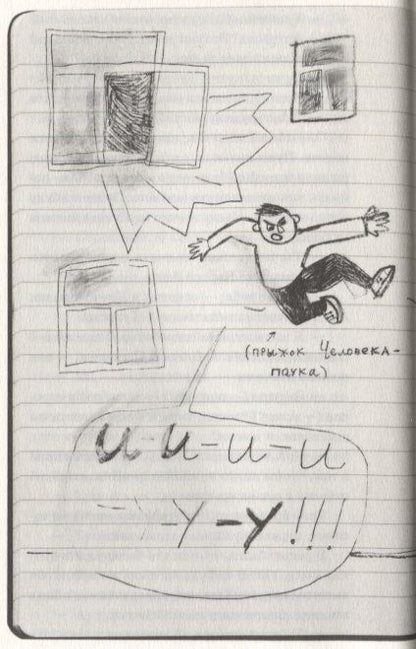 (прыжок Человека-
паука)
и и-и-и
-У-У!!!